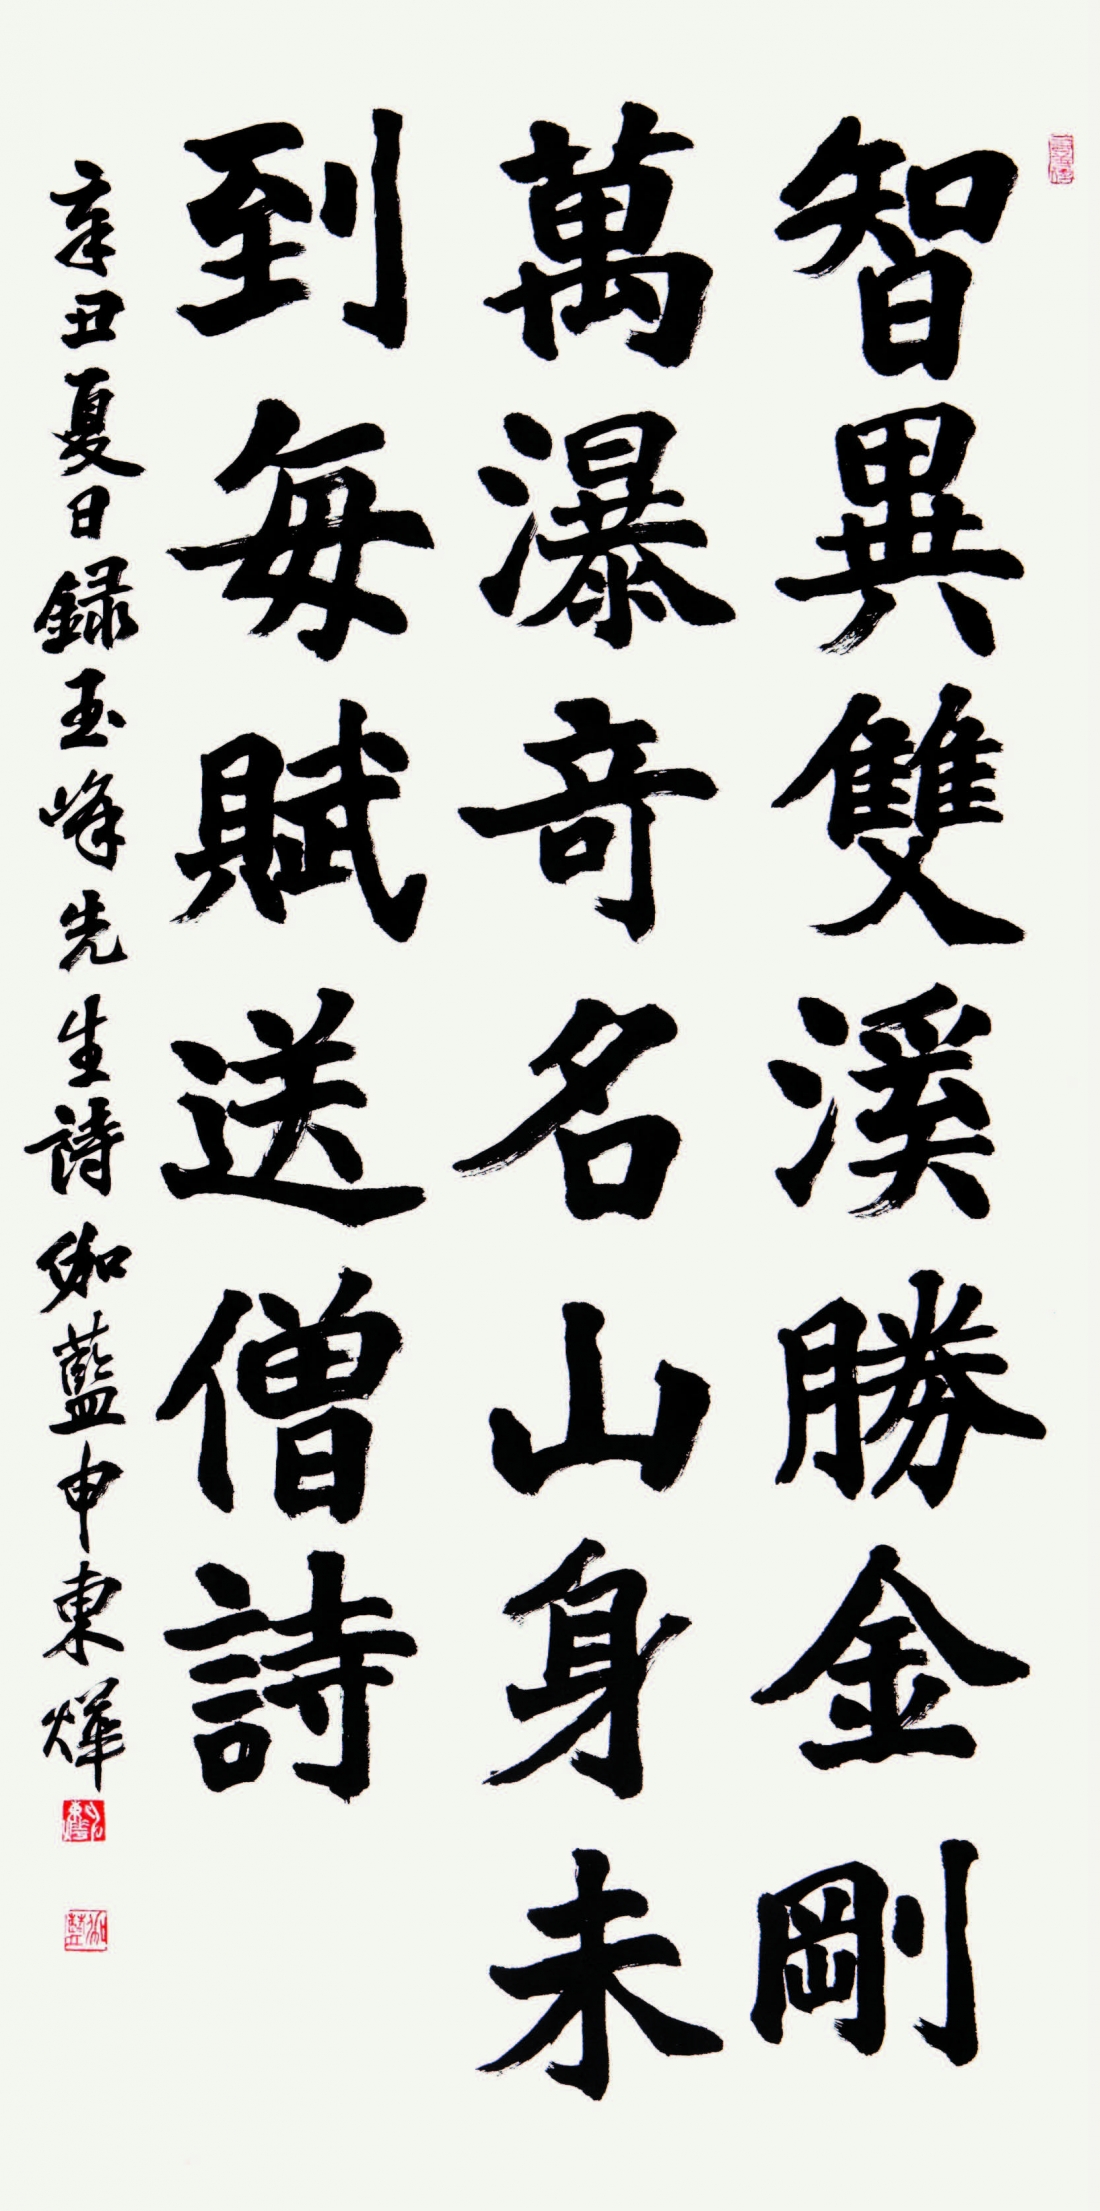 智異雙溪勝金剛
萬瀑奇名山身未
到每賦送僧詩
辛丑夏日録玉峰先生詩 伽藍申東燁